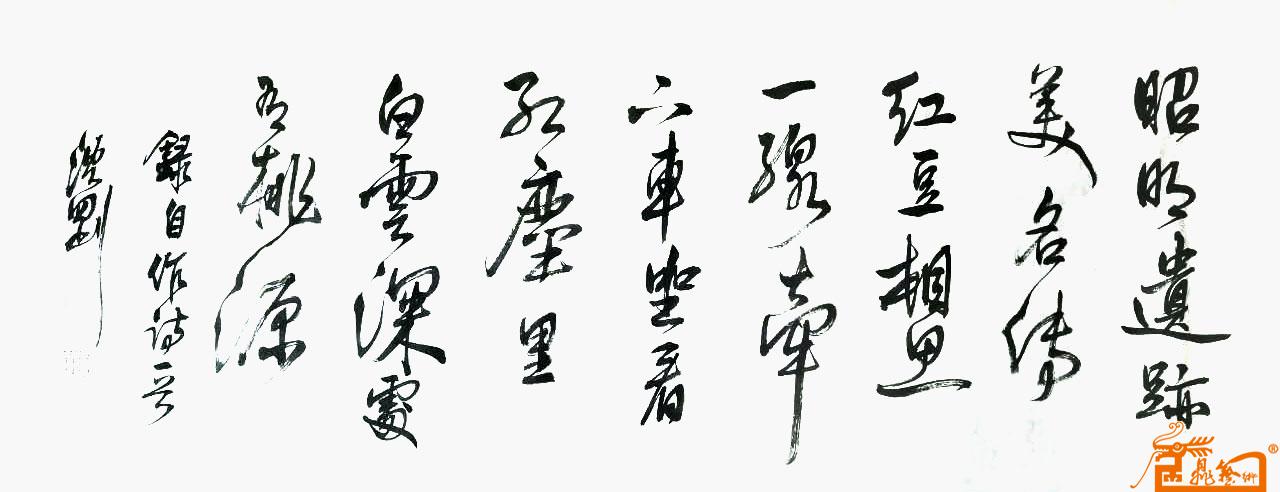 昭明遺跡
美名傳
红豆相思
一線牽
下車坐看
红塵里
白雲深處
有桃源
錄自作詩一首